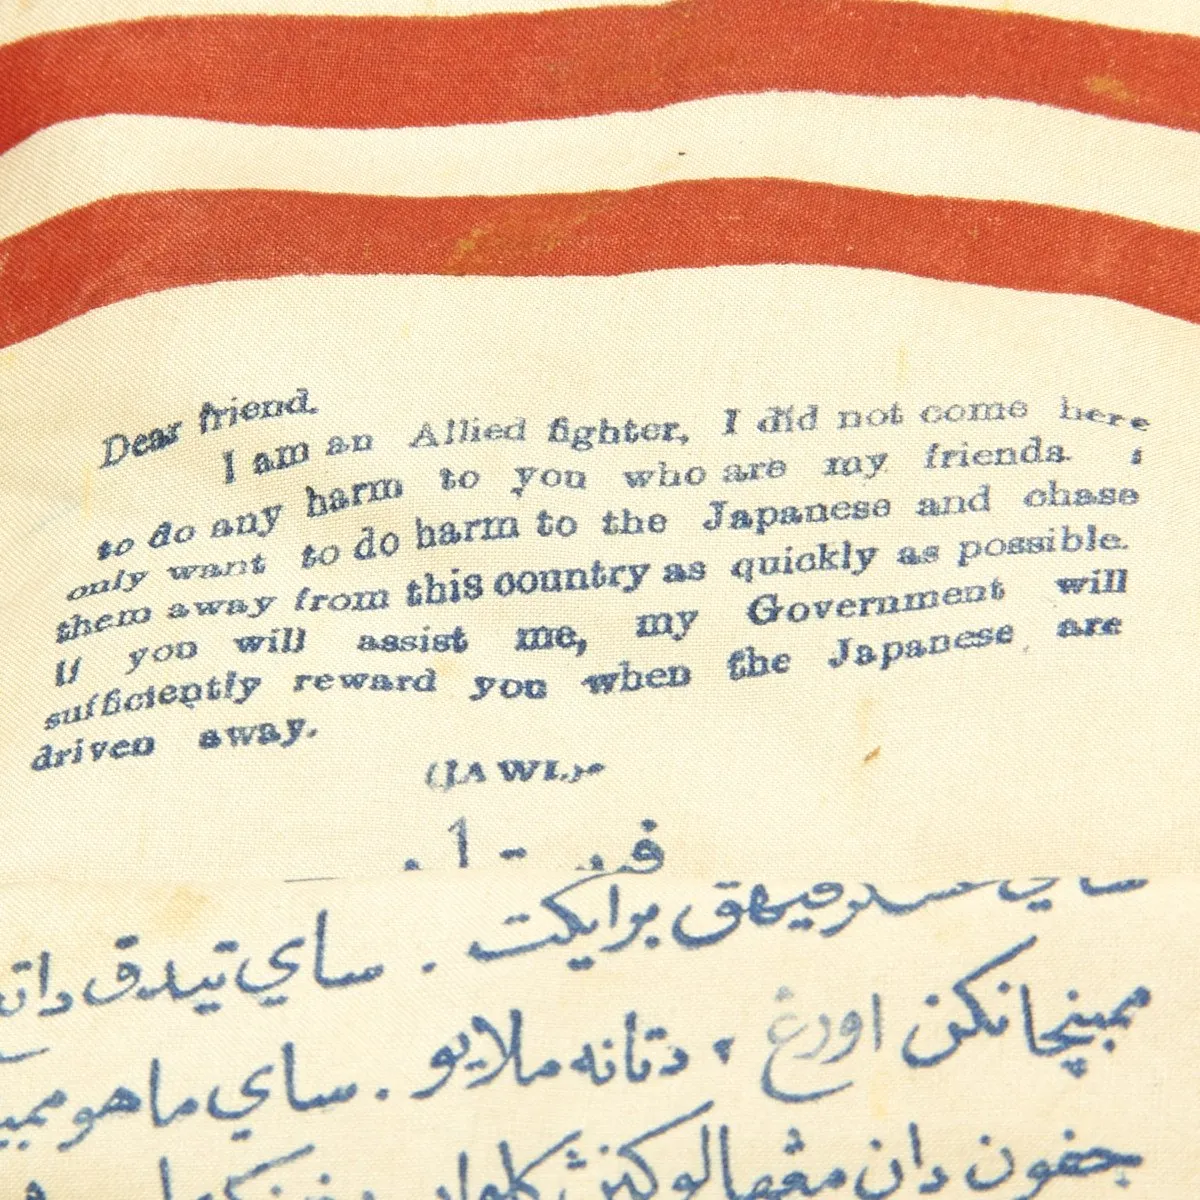 Dear friend.
I am an Allied fighter, I did not come here
to do any harm to you who are my friends. I
only want to do harm to the Japanese and chase
them away from this country as quickly as possible.
If you will assist me, my Government will
sufficiently reward you when the Japanese are
driven away.
(JAWI.)
1 -
برايكت . ساي تيدق
ممبينچاناكن اورڠ ٢ دتانه ملايو . ساي ماهو
جفون دان مڠهالوكنڽ